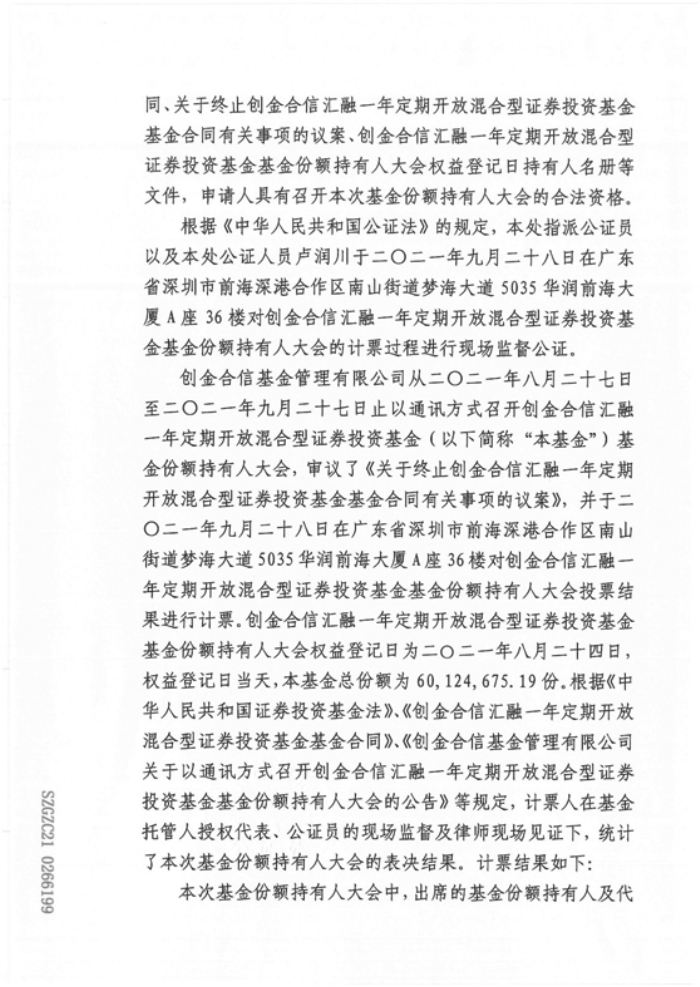 同、关于终止创金合信汇融一年定期开放混合型证券投资基金
基金合同有关事项的议案、创金合信汇融一年定期开放混合型
证券投资基金基金份额持有人大会权益登记日持有人名册等
文件，申请人具有召开本次基金份额持有人大会的合法资格。
根据《中华人民共和国公证法》的规定，本处指派公证员
以及本处公证人员卢润川于二〇二一年九月二十八日在广东
省深圳市前海深港合作区南山街道梦海大道 5035 华润前海大
厦 A 座 36 楼对创金合信汇融一年定期开放混合型证券投资基
金基金份额持有人大会的计票过程进行现场监督公证。
创金合信基金管理有限公司从二〇二一年八月二十七日
至二〇二一年九月二十七日止以通讯方式召开创金合信汇融
一年定期开放混合型证券投资基金（以下简称“本基金”）基
金份额持有人大会，审议了《关于终止创金合信汇融一年定期
开放混合型证券投资基金基金合同有关事项的议案》，并于二
〇二一年九月二十八日在广东省深圳市前海深港合作区南山
街道梦海大道 5035 华润前海大厦 A 座 36 楼对创金合信汇融一
年定期开放混合型证券投资基金基金份额持有人大会投票结
果进行计票。创金合信汇融一年定期开放混合型证券投资基金
基金份额持有人大会权益登记日为二〇二一年八月二十四日，
权益登记日当天，本基金总份额为 60,124,675.19 份。根据《中
华人民共和国证券投资基金法》、《创金合信汇融一年定期开放
混合型证券投资基金基金合同》、《创金合信基金管理有限公司
关于以通讯方式召开创金合信汇融一年定期开放混合型证券
投资基金基金份额持有人大会的公告》等规定，计票人在基金
托管人授权代表、公证员的现场监督及律师现场见证下，统计
了本次基金份额持有人大会的表决结果。计票结果如下：
本次基金份额持有人大会中，出席的基金份额持有人及代
SZGZC21 0266199